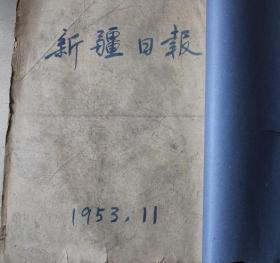 新疆日報
1953.11